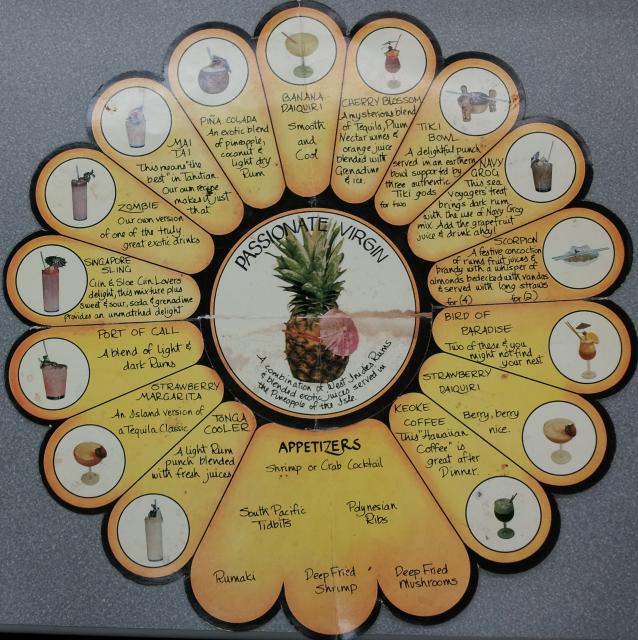 PASSIONATE VIRGIN
A combination of West Indies Rums
& blended exotic juices served in
the Pineapple of the Isle.
BANANA
DAIQUIRI
Smooth
and
Cool
CHERRY BLOSSOM
A mysterious blend
of Tequila, Plum
Nectar wines &
orange juice
blended with
Grenadine
& ice.
TIKI
BOWL
A delightful punch
served in an earthern
bowl supported by
three authentic
Tiki gods
for two
NAVY
GROG
This sea
voyagers treat
brings dark rum
with the use of Navy Grog
mix. Add the grapefruit
juice & drink ahoy!
SCORPION
A festive concoction
of rums fruit juices &
brandy with a whisper of
almonds bedecked with vandas
& served with long straws
for (4) for (2)
BIRD OF
PARADISE
Two of these & you
might not find
your nest
STRAWBERRY
DAIQUIRI
Berry, berry
nice.
KEOKE
COFFEE
This "Hawaiian
Coffee" is
great after
Dinner.
APPETIZERS
Shrimp or Crab Cocktail
South Pacific
Tidbits
Polynesian
Ribs
Rumaki
Deep Fried
Shrimp
Deep Fried
Mushrooms
TONGA
COOLER
A light Rum
punch blended
with fresh juices
STRAWBERRY
MARGARITA
An Island version of
a Tequila Classic
PORT OF CALL
A blend of light &
dark Rums
SINGAPORE
SLING
Gin & Sloe Gin Lovers
delight, this mixture plus
sweet & sour, soda, & grenadine
provides an unmatched delight
ZOMBIE
Our own version
of one of the truly
great exotic drinks
MAI
TAI
This means "the
best" in Tahitian.
Our own recipe
makes it just
that
PIÑA COLADA
An exotic blend
of pineapple,
coconut &
light dry
Rum